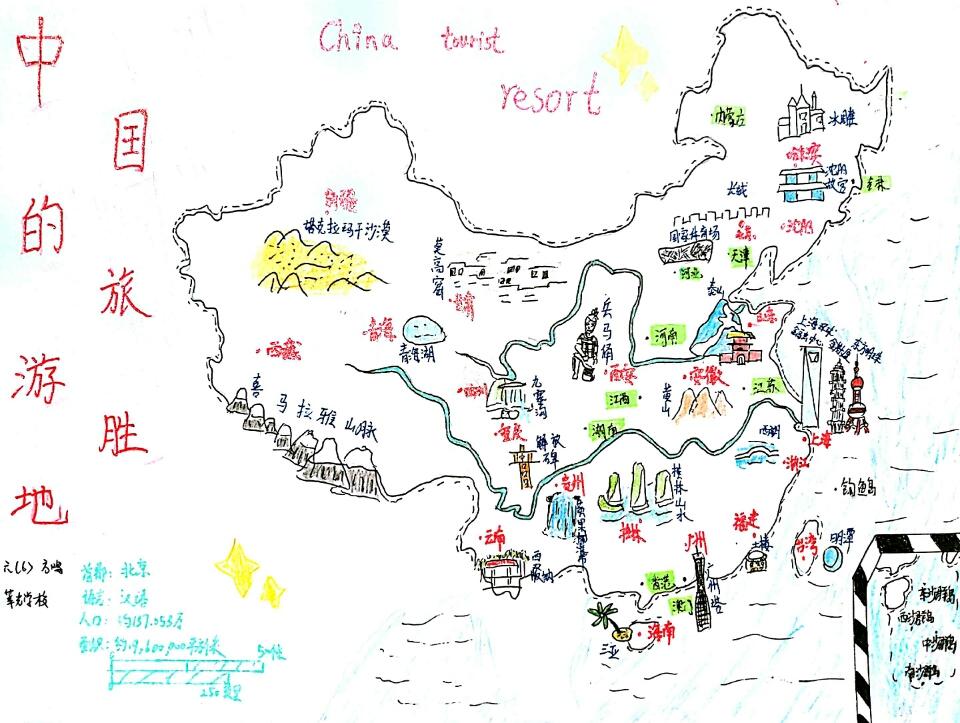 中国的旅游胜地
China tourist
resort
内蒙古
冰雕
沈阳故宫
吉林
长城
沈阳
国家体育场
天津
河北
新疆
塔克拉玛干沙漠
莫高窟
甘肃
青海
青海湖
西藏
喜马拉雅山脉
兵马俑
西安
河南
泰山
山东
安徽
黄山
江苏
江西
湖南
四川
九寨沟
重庆
解放碑
贵州
黄果树瀑布
桂林山水
桂林
西湖
浙江
上海
东方明珠
钓鱼岛
福建
土楼
台湾
日月潭
云南
西双版纳
广州
广州塔
香港
澳门
海南
三亚
东沙群岛
西沙群岛
中沙群岛
南沙群岛
首都：北京
语言：汉语
面积：约9,600,000平方千米